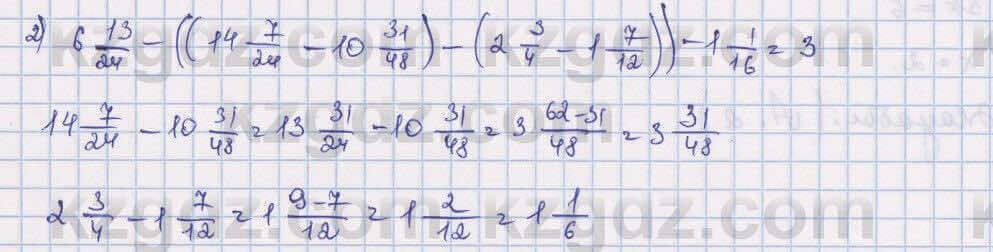 2) 6 13/24 - ((14 7/24 - 10 31/48) - (2 3/4 - 1 7/12)) - 1 1/16 = 3
14 7/24 - 10 31/48 = 13 31/24 - 10 31/48 = 3 (62-31)/48 = 3 31/48
2 3/4 - 1 7/12 = 1 (9-7)/12 = 1 2/12 = 1 1/6
kzgdz.com